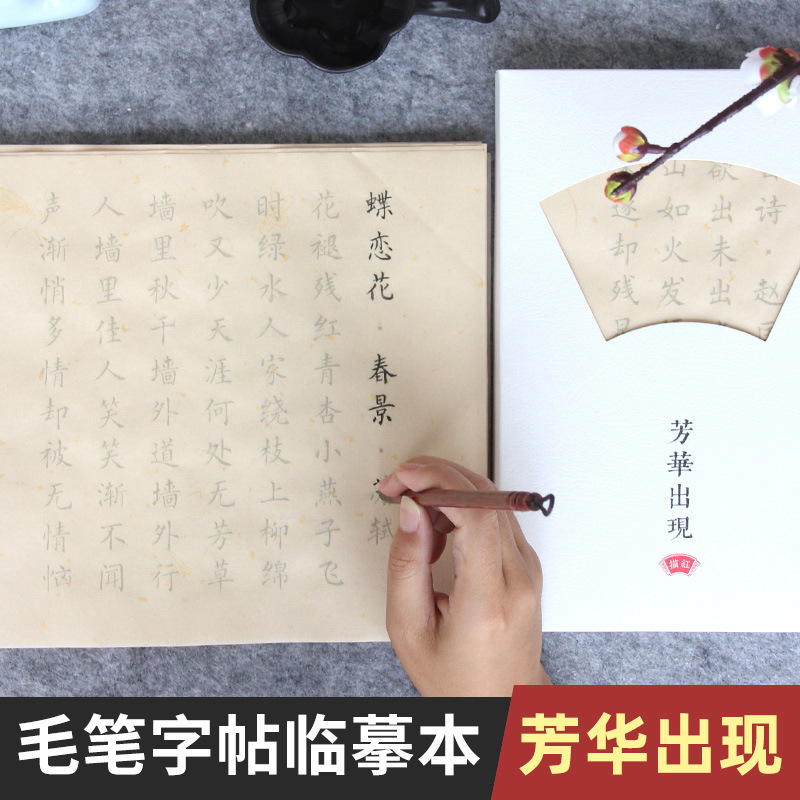 蝶恋花·春景·苏轼
花褪残红青杏小燕子飞
时绿水人家绕枝上柳绵
吹又少天涯何处无芳草
墙里秋千墙外道墙外行
人墙里佳人笑笑渐不闻
声渐悄多情却被无情恼
诗·赵
欲出未出
山如火发
却残
芳華出現
描红
毛笔字帖临摹本
芳华出现